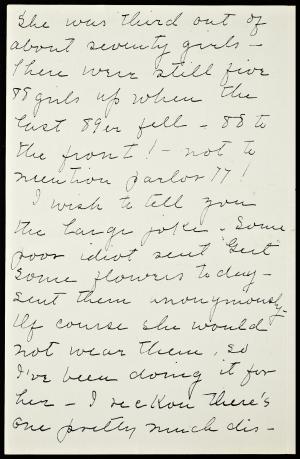 She was third out of
about seventy girls –
There were still five
88 girls up when the
last 89er fell – 88 to
the front! – not to
mention parlor 77!
I wish to tell you
the large joke. Some
poor idiot sent Gert
some flowers today –
sent them anonymously –
Of course she would
not wear them, so
I've been doing it for
her – I reckon there's
one pretty much dis –